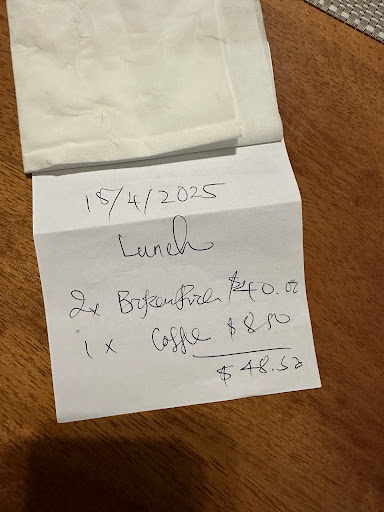 18/4/2025
Lunch
2x Broken Rice $40.00
1 x Coffe $8.50
$48.50